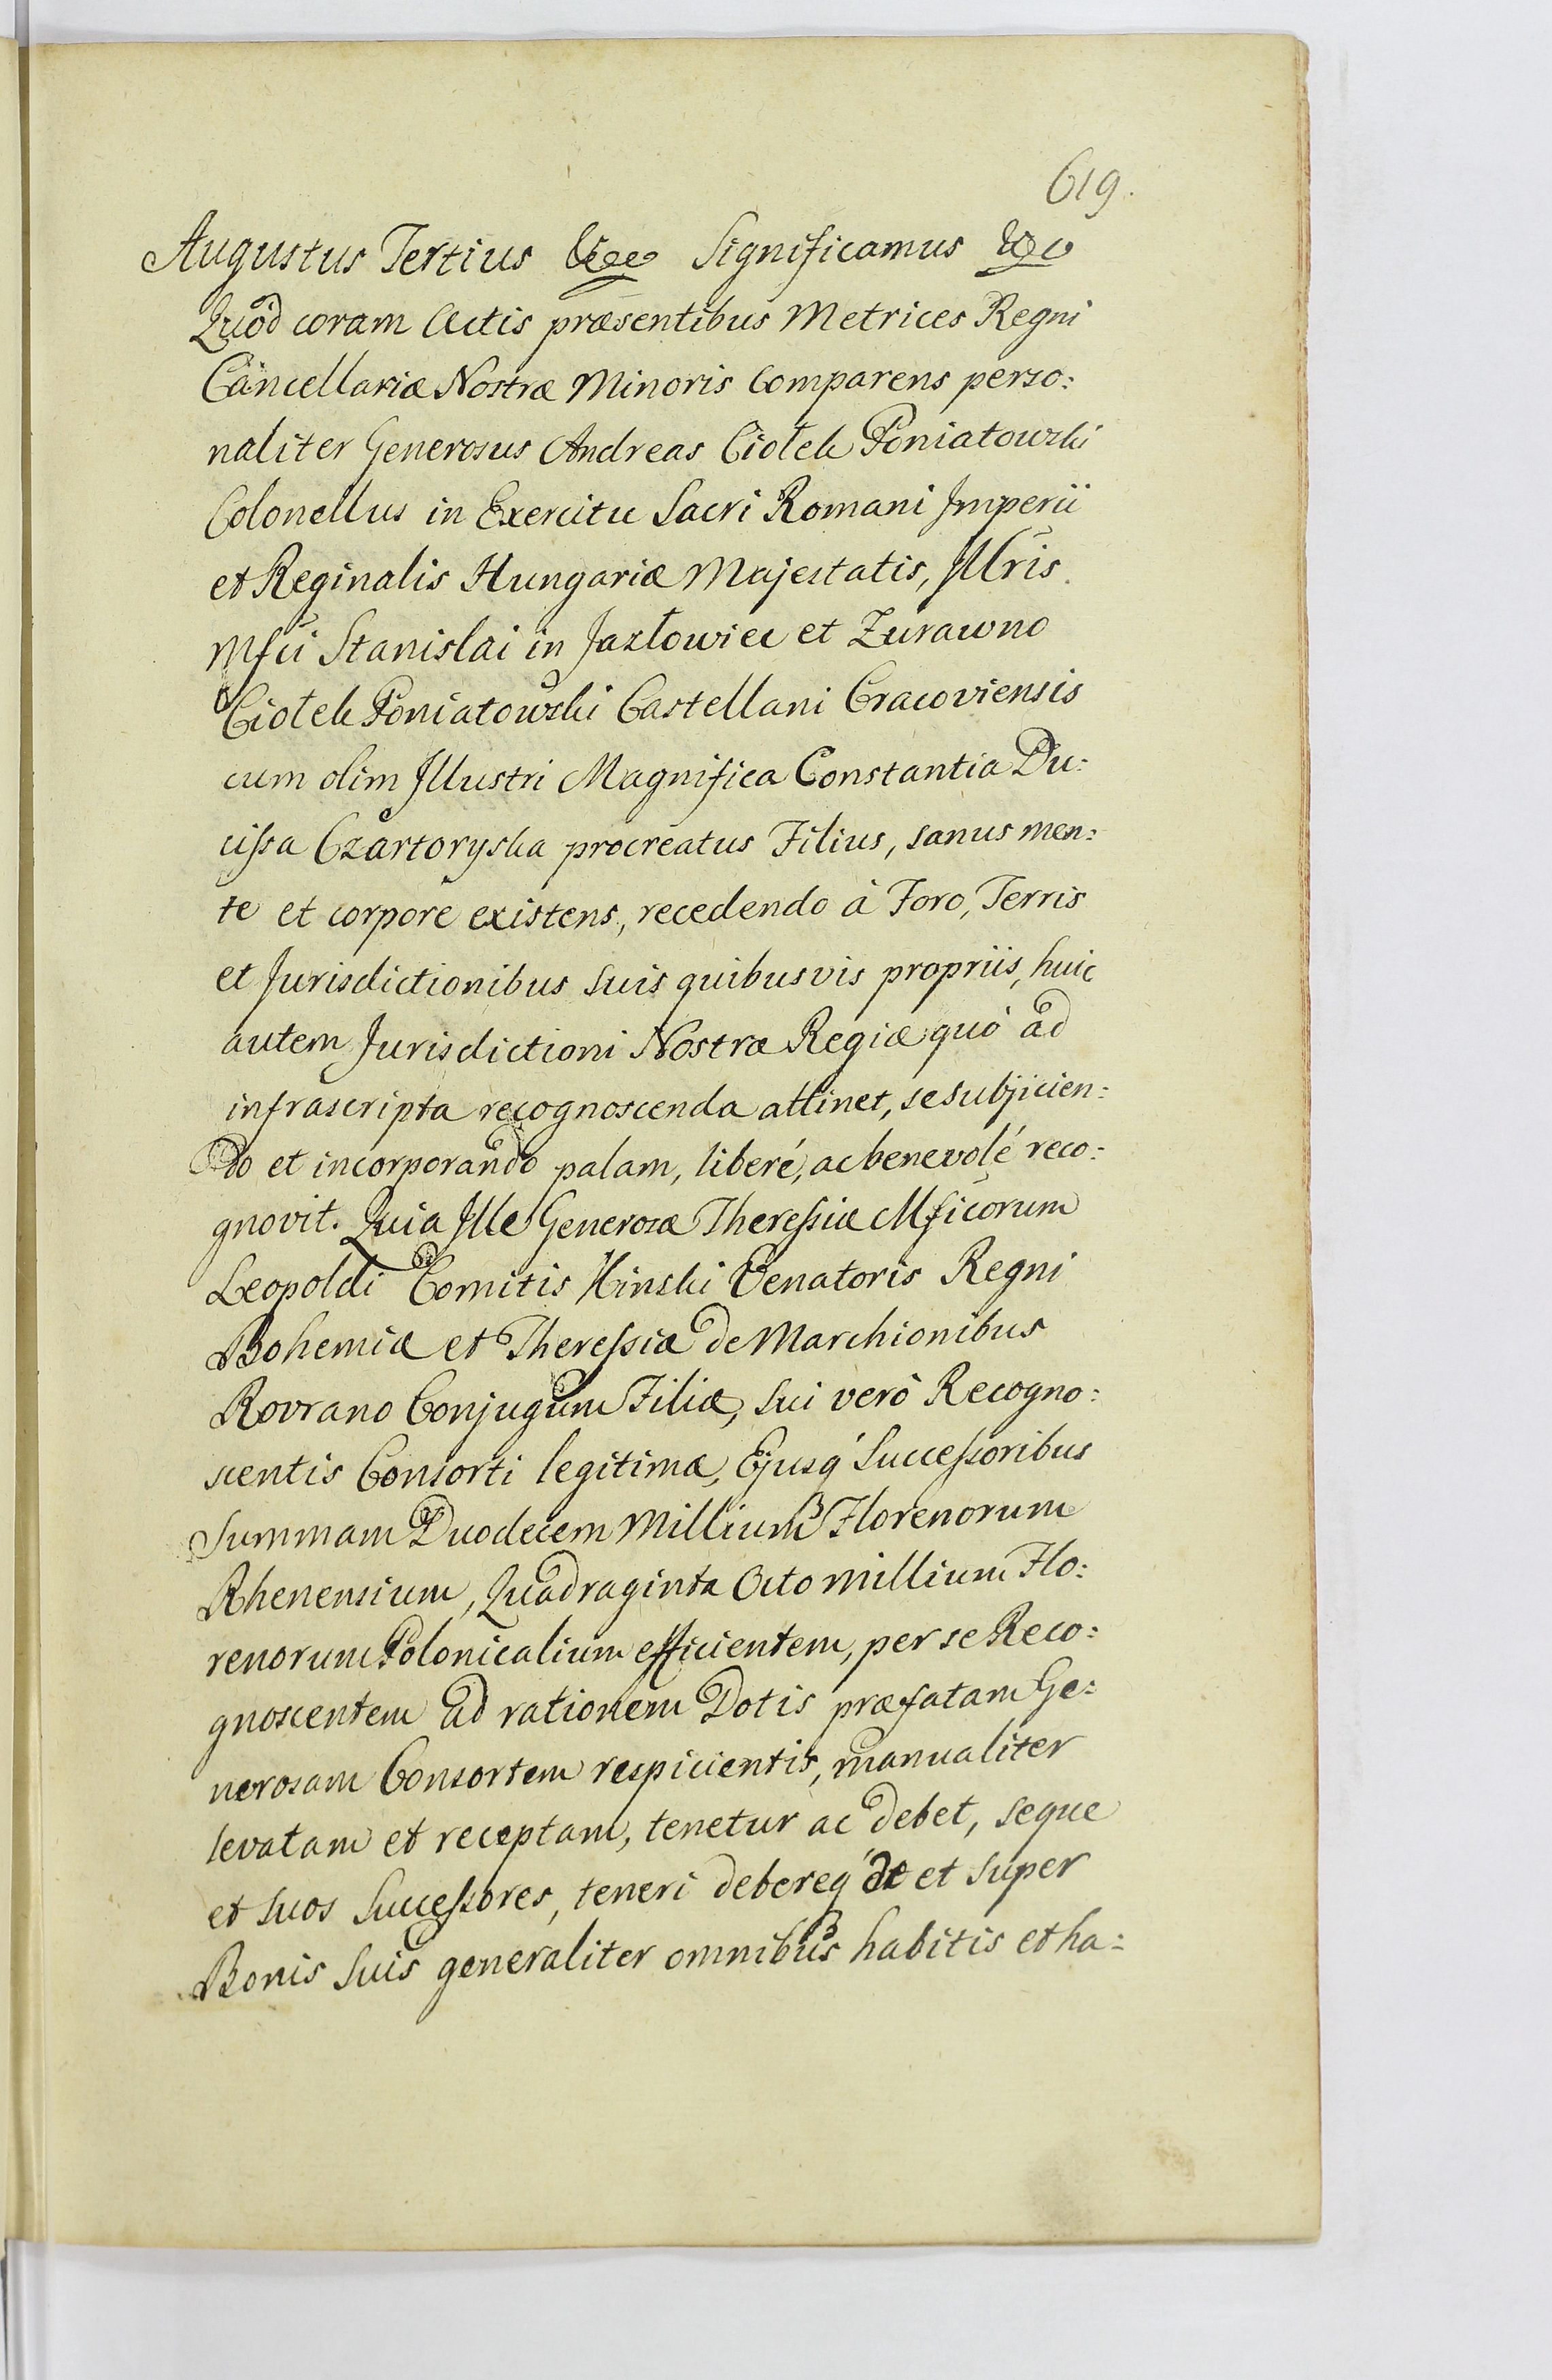 619.
Augustus Tertius &cc Significamus &c
Quod coram Actis præsentibus Metrices Regni
Cancellariæ Nostræ Minoris Comparens perso:
naliter Generosus Andreas Ciołek Poniatowski
Colonellus in Exercitu Sacri Romani Imperii
et Reginalis Hungariæ Majestatis, Illris
Mfci Stanislai in Jazłowiec et Zurawno
Ciołek Poniatowski Castellani Cracoviensis
cum olim Illustri Magnifica Constantia Du:
cissa Czartoryska procreatus Filius, sanus men:
te et corpore existens, recedendo à Foro, Terris
et Jurisdictionibus suis quibusvis propriis, huic
autem Jurisdictioni Nostræ Regiæ quó ad
infrascripta recognoscenda attinet, se subjicien:
do et incorporando palam, liberé, ac benevolé reco:
gnovit. Quia Ille Generosæ Theressiæ Mficorum
Leopoldi Comitis Kinski Venatoris Regni
Bohemiæ et Theressiæ de Marchionibus
Rovrano Conjugum Filiæ, sui verò Recogno:
scentis Consorti legitimæ, Ejusq' Successoribus
Summam Duodecem Millium Florenorum
Rhenensium, Quadraginta Octo millium Flo:
renorum Polonicalium efficientem, per se Reco:
gnoscentem ad rationem Dotis præfatam Ge:
nerosam Consortem respicientis, manualiter
levatam et receptam, tenetur ac debet, seque
et suos Successores, teneri debereq' de et super
Bonis suis generaliter omnibus habitis et ha: